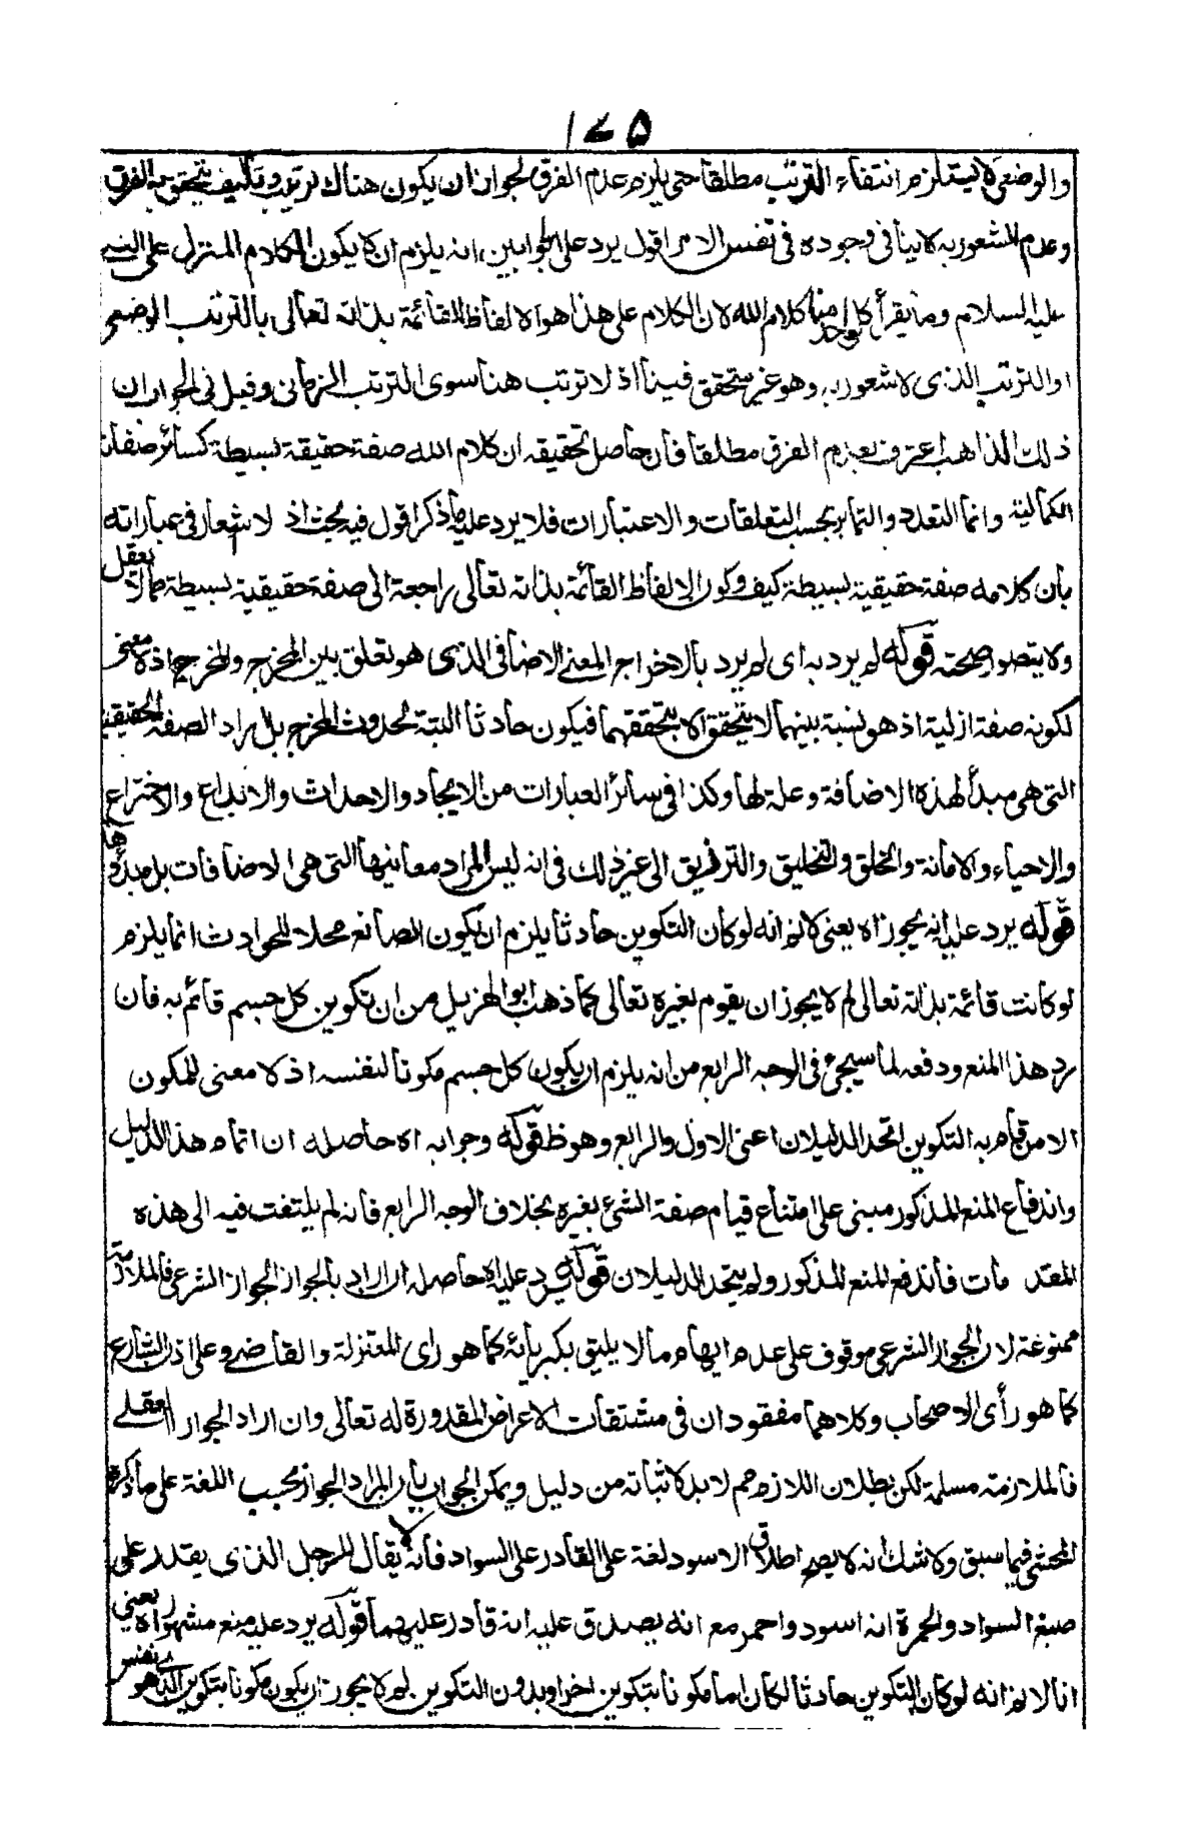 ١٧٥
والوضعى لا يستلزم انتفاء الترتب مطلقا حتى يلزم عدم الفرق لجواز ان يكون هناك ترتب وتأليف يتحقق به الفرق
وعدم الشعور به لا ينافى وجوده فى نفس الامر اقول يرد على الجوابين انه يلزم ان لا يكون الكلام المنزل على النبى
عليه السلام وما يقرأ كل احد منا كلام الله لان الكلام على هذا هو الالفاظ القائمة بذاته تعالى بالترتب الوضعى
او الترتب الذى لا شعور به وهو غير متحقق فينا اذ لا ترتب هنا سوى الترتب الزمانى وقيل فى الجواب ان
ذلك الذاهب اعترف بعدم الفرق مطلقا فان حاصل تحقيقه ان كلام الله صفة حقيقة بسيطة كسائر صفات
الكمالية وانما التعدد والتمايز بحسب التعلقات والاعتبارات فلا يرد عليه ما ذكر اقول فيه بحث اذ لا اشعار فى عباراته
بان كلامه صفة حقيقية بسيطة كيف وكون الالفاظ القائمة بذاته تعالى راجعة الى صفة حقيقية بسيطة مما لا يعقل
ولا يتصور صحته قوله لم يرد به اى لم يرد بالاخراج المعنى الاضافى الذى هو تعلق بين المخرج والمخرج اذ لا معنى
لكونه صفة ازلية اذ هو نسبة بينهما لا يتحقق الا بتحققهما فيكون حادثا البتة لحدوث المخرج بل اراد الصفة الحقيقية
التى هى مبدأ لهذه الاضافة وعلة لها وكذا فى سائر العبارات من الايجاد والاحداث والابداع والاختراع
والاحياء والاماتة والخلق والتخليق والترزيق الى غير ذلك فى انه ليس المراد معانيها التى هى الاضافات بل مبدؤها
قوله يرد عليه انه يجوز اه يعنى لا نم انه لو كان التكوين حادثا يلزم ان يكون الصانع محلا للحوادث انما يلزم
لو كانت قائمة بذاته تعالى لم لا يجوز ان يقوم بغيره تعالى كما ذهب ابو الهزيل من ان تكوين كل جسم قائم به فان
رد هذا المنع ودفعه لما سيجئ فى الوجه الرابع من انه يلزم ان يكون كل جسم مكونا لنفسه اذ لا معنى للمكون
الا من قام به التكوين اتحد الدليلان اعنى الاول والرابع وهو ظ قوله وجوابه اه حاصله ان اتمام هذا الدليل
واندفاع المنع المذكور مبنى على امتناع قيام صفة الشئ بغيره بخلاف الوجه الرابع فانه لم يلتفت فيه الى هذه
المقدمات فاندفع المنع المذكور ولم يتحد الدليلان قوله يرد عليه اه حاصله ان اراد بالجواز الجواز الشرعى فالملازمة
ممنوعة لان الجواز الشرعى موقوف على عدم ايهام ما لا يليق بكبريائه كما هو رأى المعتزلة والقاضى وعلى اذن الشارع
كما هو رأى الاصحاب وكلاهما مفقودان فى مشتقات الاعراض المقدورة له تعالى وان اراد الجواز العقلى
فالملازمة مسلمة لكن بطلان اللازم مم لا بد لاثباته من دليل ويمكن الجواب بان المراد الجواز بحسب اللغة على ما ذكره
المحشى فيما سبق ولا شك انه لا يصح اطلاق الاسود لغة على القادر على السواد فانه لا يقال للرجل الذى يقدر على
صبغ السواد والحمرة انه اسود واحمر مع انه يصدق عليه انه قادر عليهما قوله يرد عليه منع مشهور اه يعنى
انا لا نم انه لو كان التكوين حادثا لكان اما مكونا بتكوين اخر او بدون التكوين لم لا يجوز ان يكون مكونا بتكوين الذى هو نفس